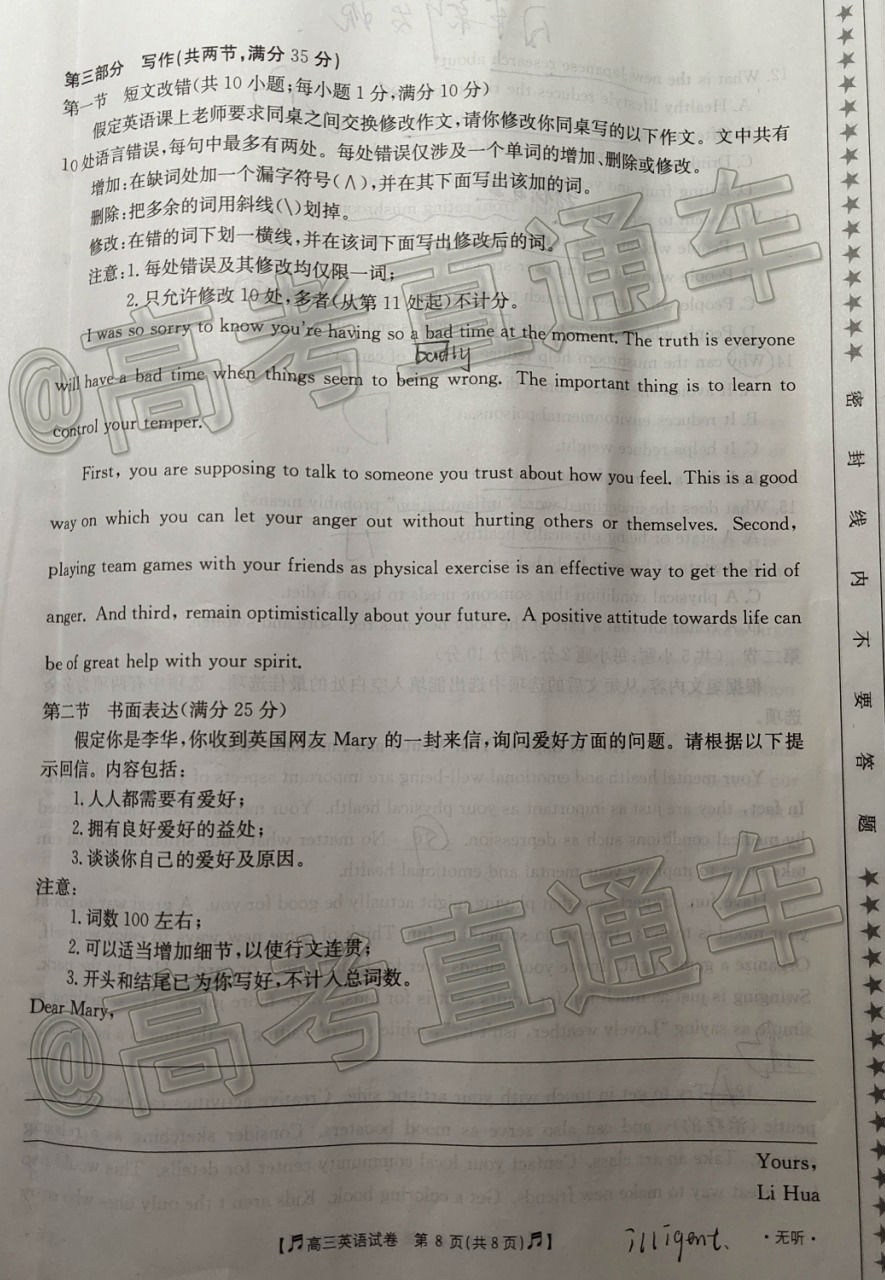 第三部分 写作(共两节,满分 35 分)
第一节 短文改错(共 10 小题;每小题 1 分,满分 10 分)
假定英语课上老师要求同桌之间交换修改作文,请你修改你同桌写的以下作文。文中共有
10 处语言错误,每句中最多有两处。每处错误仅涉及一个单词的增加、删除或修改。
增加:在缺词处加一个漏字符号(∧),并在其下面写出该加的词。
删除:把多余的词用斜线(\)划掉。
修改:在错的词下划一横线,并在该词下面写出修改后的词。
注意:1. 每处错误及其修改均仅限一词;
2. 只允许修改 10 处,多者(从第 11 处起)不计分。
I was so sorry to know you're having so a bad time at the moment. The truth is everyone
badly
will have a bad time when things seem to being wrong. The important thing is to learn to
control your temper.
First, you are supposing to talk to someone you trust about how you feel. This is a good
way on which you can let your anger out without hurting others or themselves. Second,
playing team games with your friends as physical exercise is an effective way to get the rid of
anger. And third, remain optimistically about your future. A positive attitude towards life can
be of great help with your spirit.
第二节 书面表达(满分 25 分)
假定你是李华,你收到英国网友 Mary 的一封来信,询问爱好方面的问题。请根据以下提
示回信。内容包括:
1. 人人都需要有爱好;
2. 拥有良好爱好的益处;
3. 谈谈你自己的爱好及原因。
注意:
1. 词数 100 左右;
2. 可以适当增加细节,以使行文连贯;
3. 开头和结尾已为你写好,不计入总词数。
Dear Mary,
Yours,
Li Hua
【高三英语试卷 第 8 页(共 8 页)】
illigent.
·无听·
密封线内不要答题
@高考直通车
@高考直通车